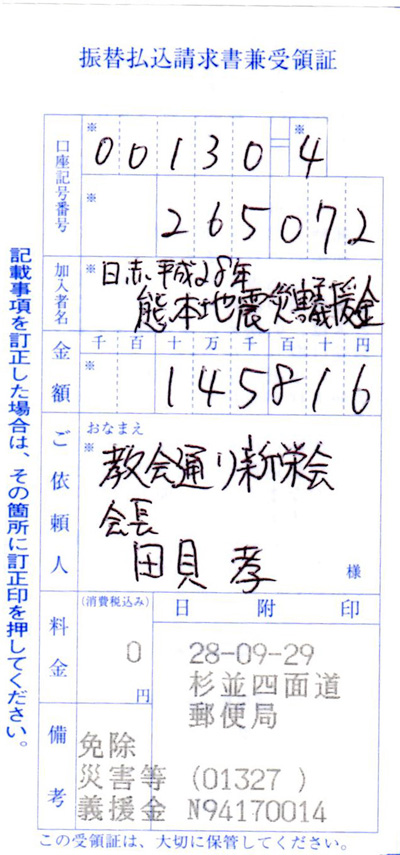 振替払込請求書兼受領証
口座記号番号
※ 00130 ※ 4
※ 265072
加入者名
※ 日赤平成28年
熊本地震災害義援金
金額
千 百 十 万 千 百 十 円
※ 145816
ご依頼人
おなまえ
※ 教会通り新栄会
会長
田貝 孝 様
料金
(消費税込み)
0
円
日附印
28-09-29
杉並四面道
郵便局
備考
免除
災害等 (01327 )
義援金 N94170014
この受領証は、大切に保管してください。
記載事項を訂正した場合は、その箇所に訂正印を押してください。